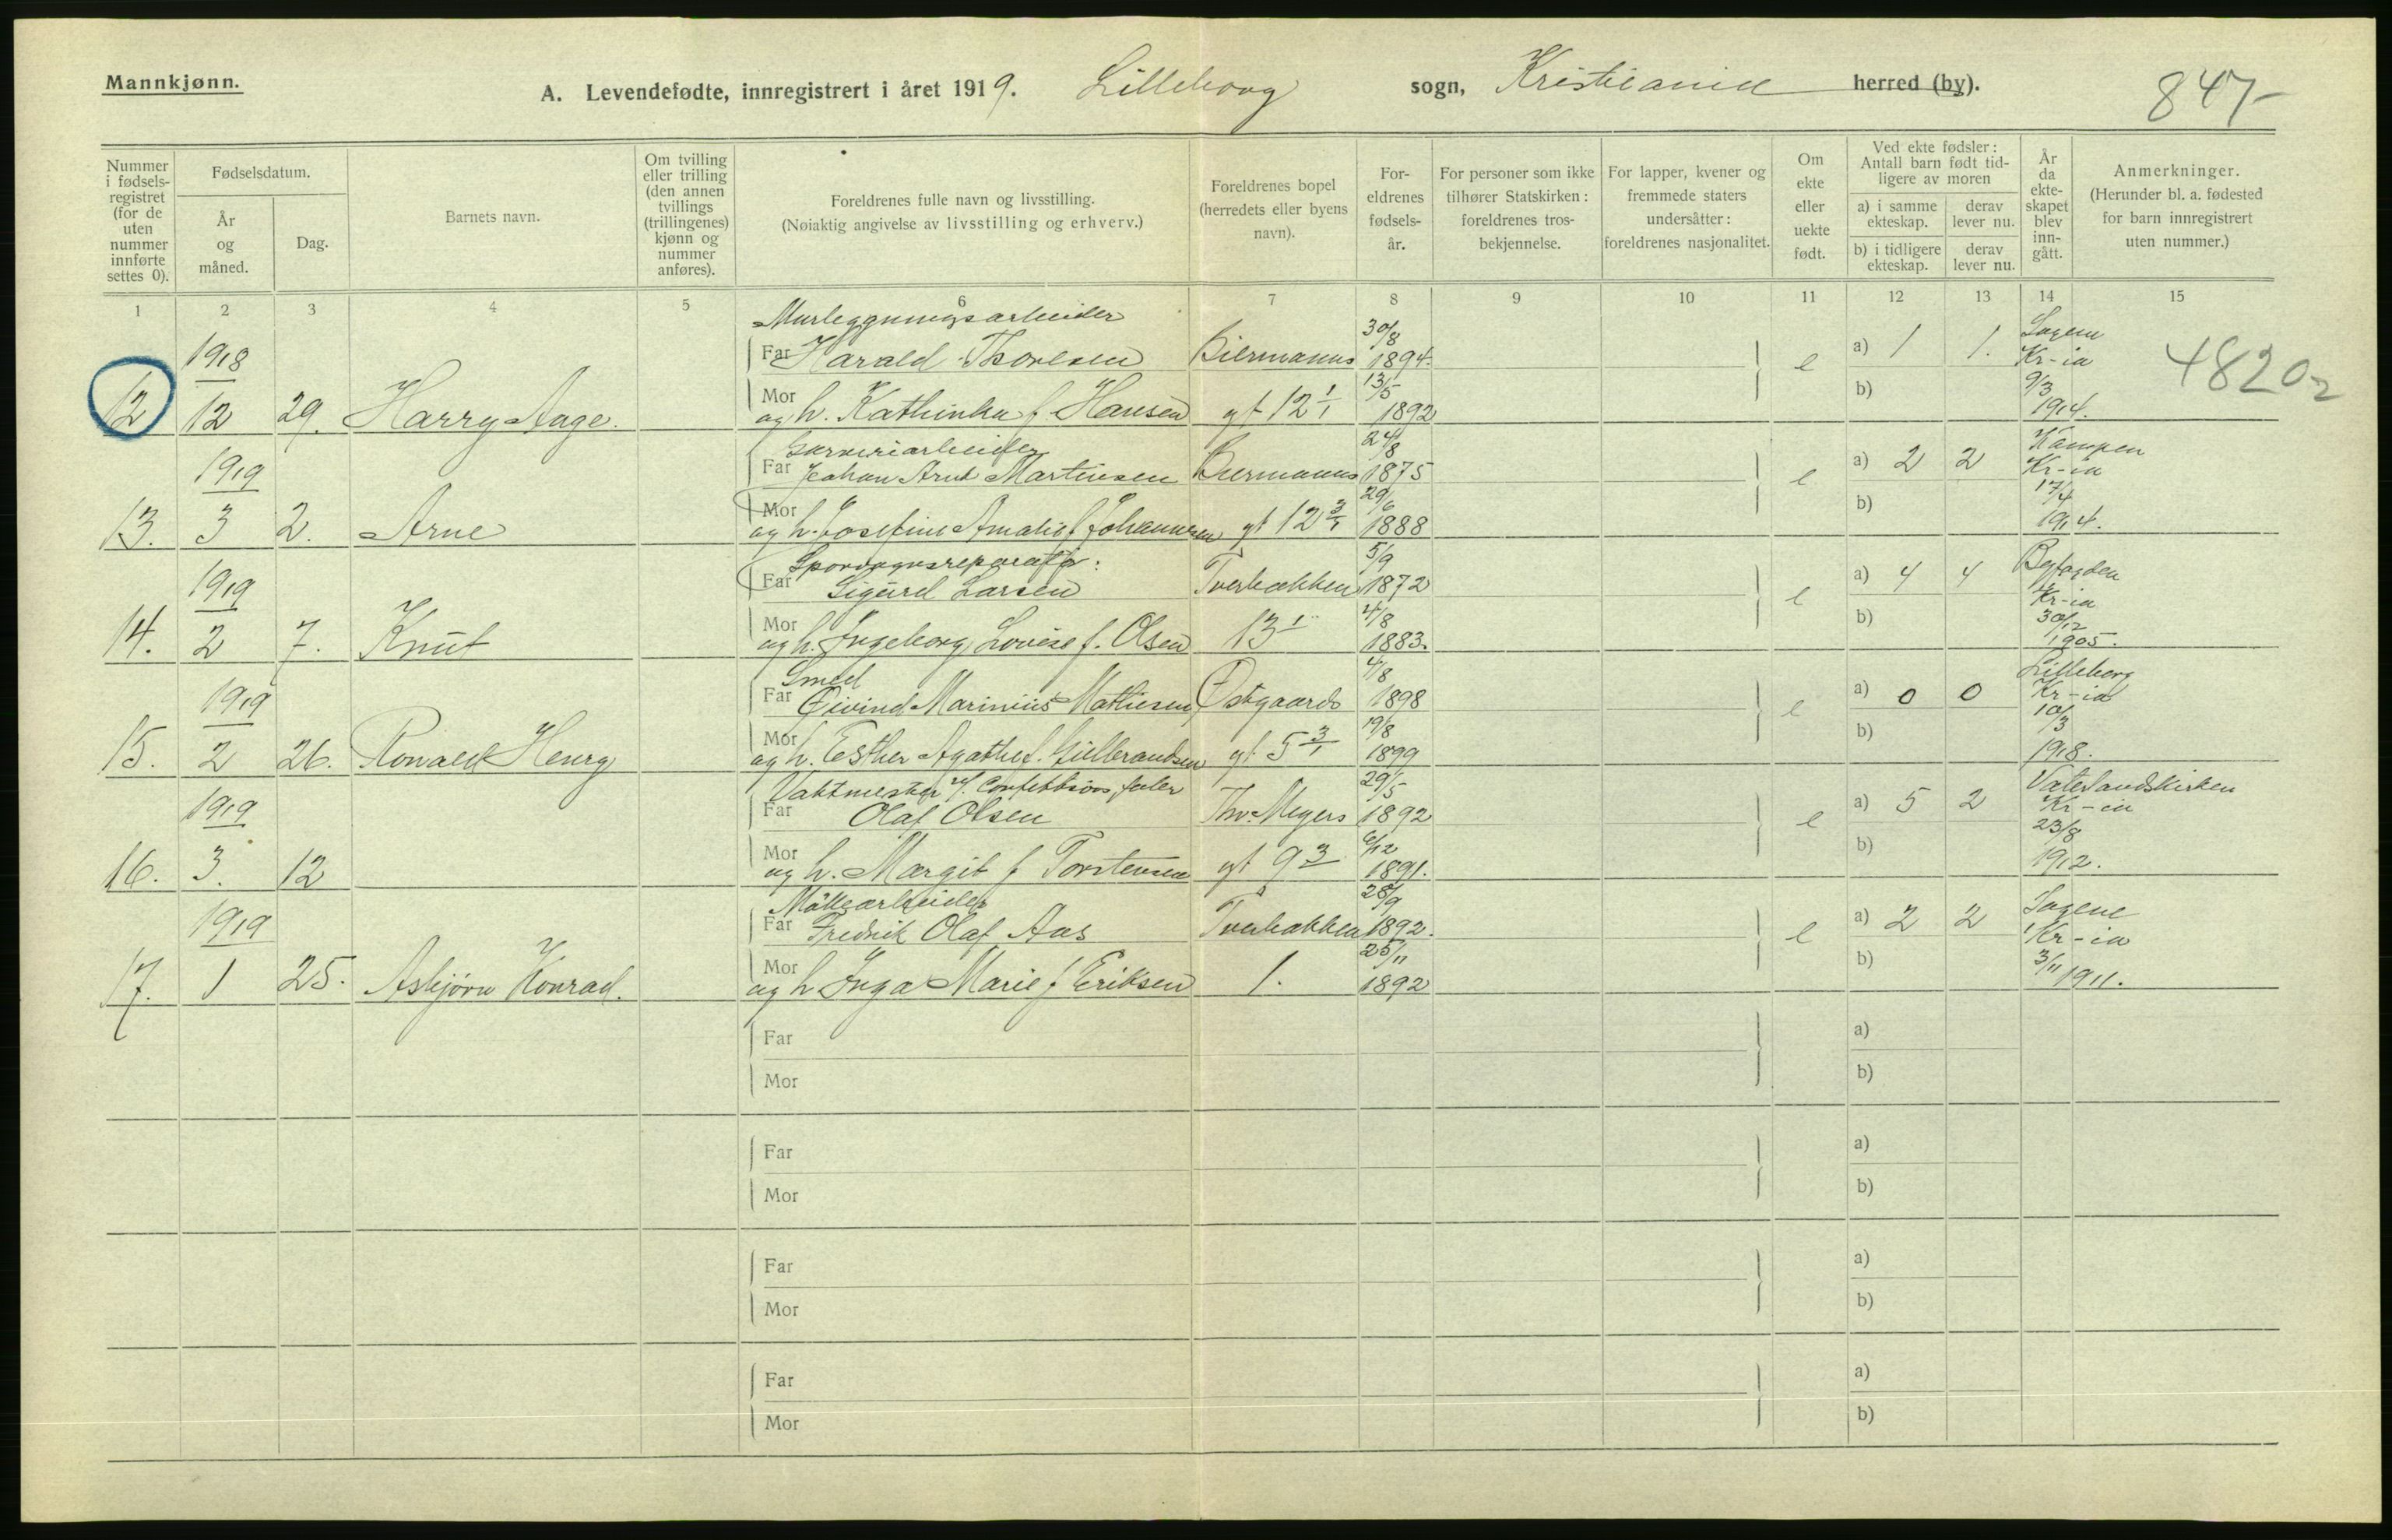 Mannkjønn.
A. Levendefødte, innregistrert i året 1919. Lilleborg sogn, Kristiania herred (by).
847-
Nummer i fødsels-registret (for de uten nummer innførte settes 0).
Fødselsdatum.
År og måned.
Dag.
Barnets navn.
Om tvilling eller trilling (den annen tvillings (trillingenes) kjønn og nummer anføres).
Foreldrenes fulle navn og livsstilling.
(Nøiaktig angivelse av livsstilling og erhverv.)
Foreldrenes bopel (herredets eller byens navn).
For-eldrenes fødsels-år.
For personer som ikke tilhører Statskirken: foreldrenes tros-bekjennelse.
For lapper, kvener og fremmede staters undersåtter: foreldrenes nasjonalitet.
Om ekte eller uekte født.
Ved ekte fødsler: Antall barn født tid-ligere av moren
a) i samme ekteskap.
derav lever nu.
b) i tidligere ekteskap.
derav lever nu.
År da ekte-skapet blev inn-gått.
Anmerkninger.
(Herunder bl. a. fødested for barn innregistrert uten nummer.)
1 2 3 4 5 6 7 8 9 10 11 12 13 14 15
Murleggningsarbeider 30/8 Sagene
1918 Far Harald Thoresen Biermanns 1894. e a) 1 1. Kr-ia 4820
12 12 29. Harry Aage. Mor og h. Kathinka f Hansen gt 12 1/1 13/5 1892 b) 9/3 1914.
Garveriarbeider 24/8 Kampen
1919 Far Johan Arnt Martinsen Biermanns 1875 e a) 2 2 Kr-ia
13. 3 2. Arne Mor og h. Josefine Amalie f Johannesen gt 12 3/1 29/6 1888 b) 17/4 1914.
Sporvognsreparatør: 5/9
1919 Far Sigurd Larsen Tverbakken 1872 e a) 4 4 Kr-ia
14. 2 7. Knut Mor og h. Ingeborg Lovise f. Olsen 13 1 4/8 1883. b) 30/12 1905.
Smed 4/8 Lilleborg
1919 Far Øivind Marinius Mathiesen Østgaards 1898 e a) 0 0 Kr-ia
15. 2 26. Ronald Henry Mor og h. Esther Agathe f. Gulbrandsen gt 5 3/1 19/8 1899 b) 10/3 1918.
Vaktmester 29/5 Vaterlandskirken
1919 Far Olaf Olsen Thv. Meyers 1892 e a) 5 2 Kr-ia
16. 3. 12 Mor og h. Margit f Torstensen gt 9 3 6/12 1891. b) 23/8 1912.
Møllearbeider 28/9 Sagene
1919 Far Fredrik Olaf Aas Tverbakken 1892. e a) 2 2 Kr-ia
17. 1 25. Asbjørn Konrad. Mor og h Inga Marie f Eriksen 1. 25/11 1892 b) 3/11 1911.
Far a)
Mor b)
Far a)
Mor b)
Far a)
Mor b)
Far a)
Mor b)